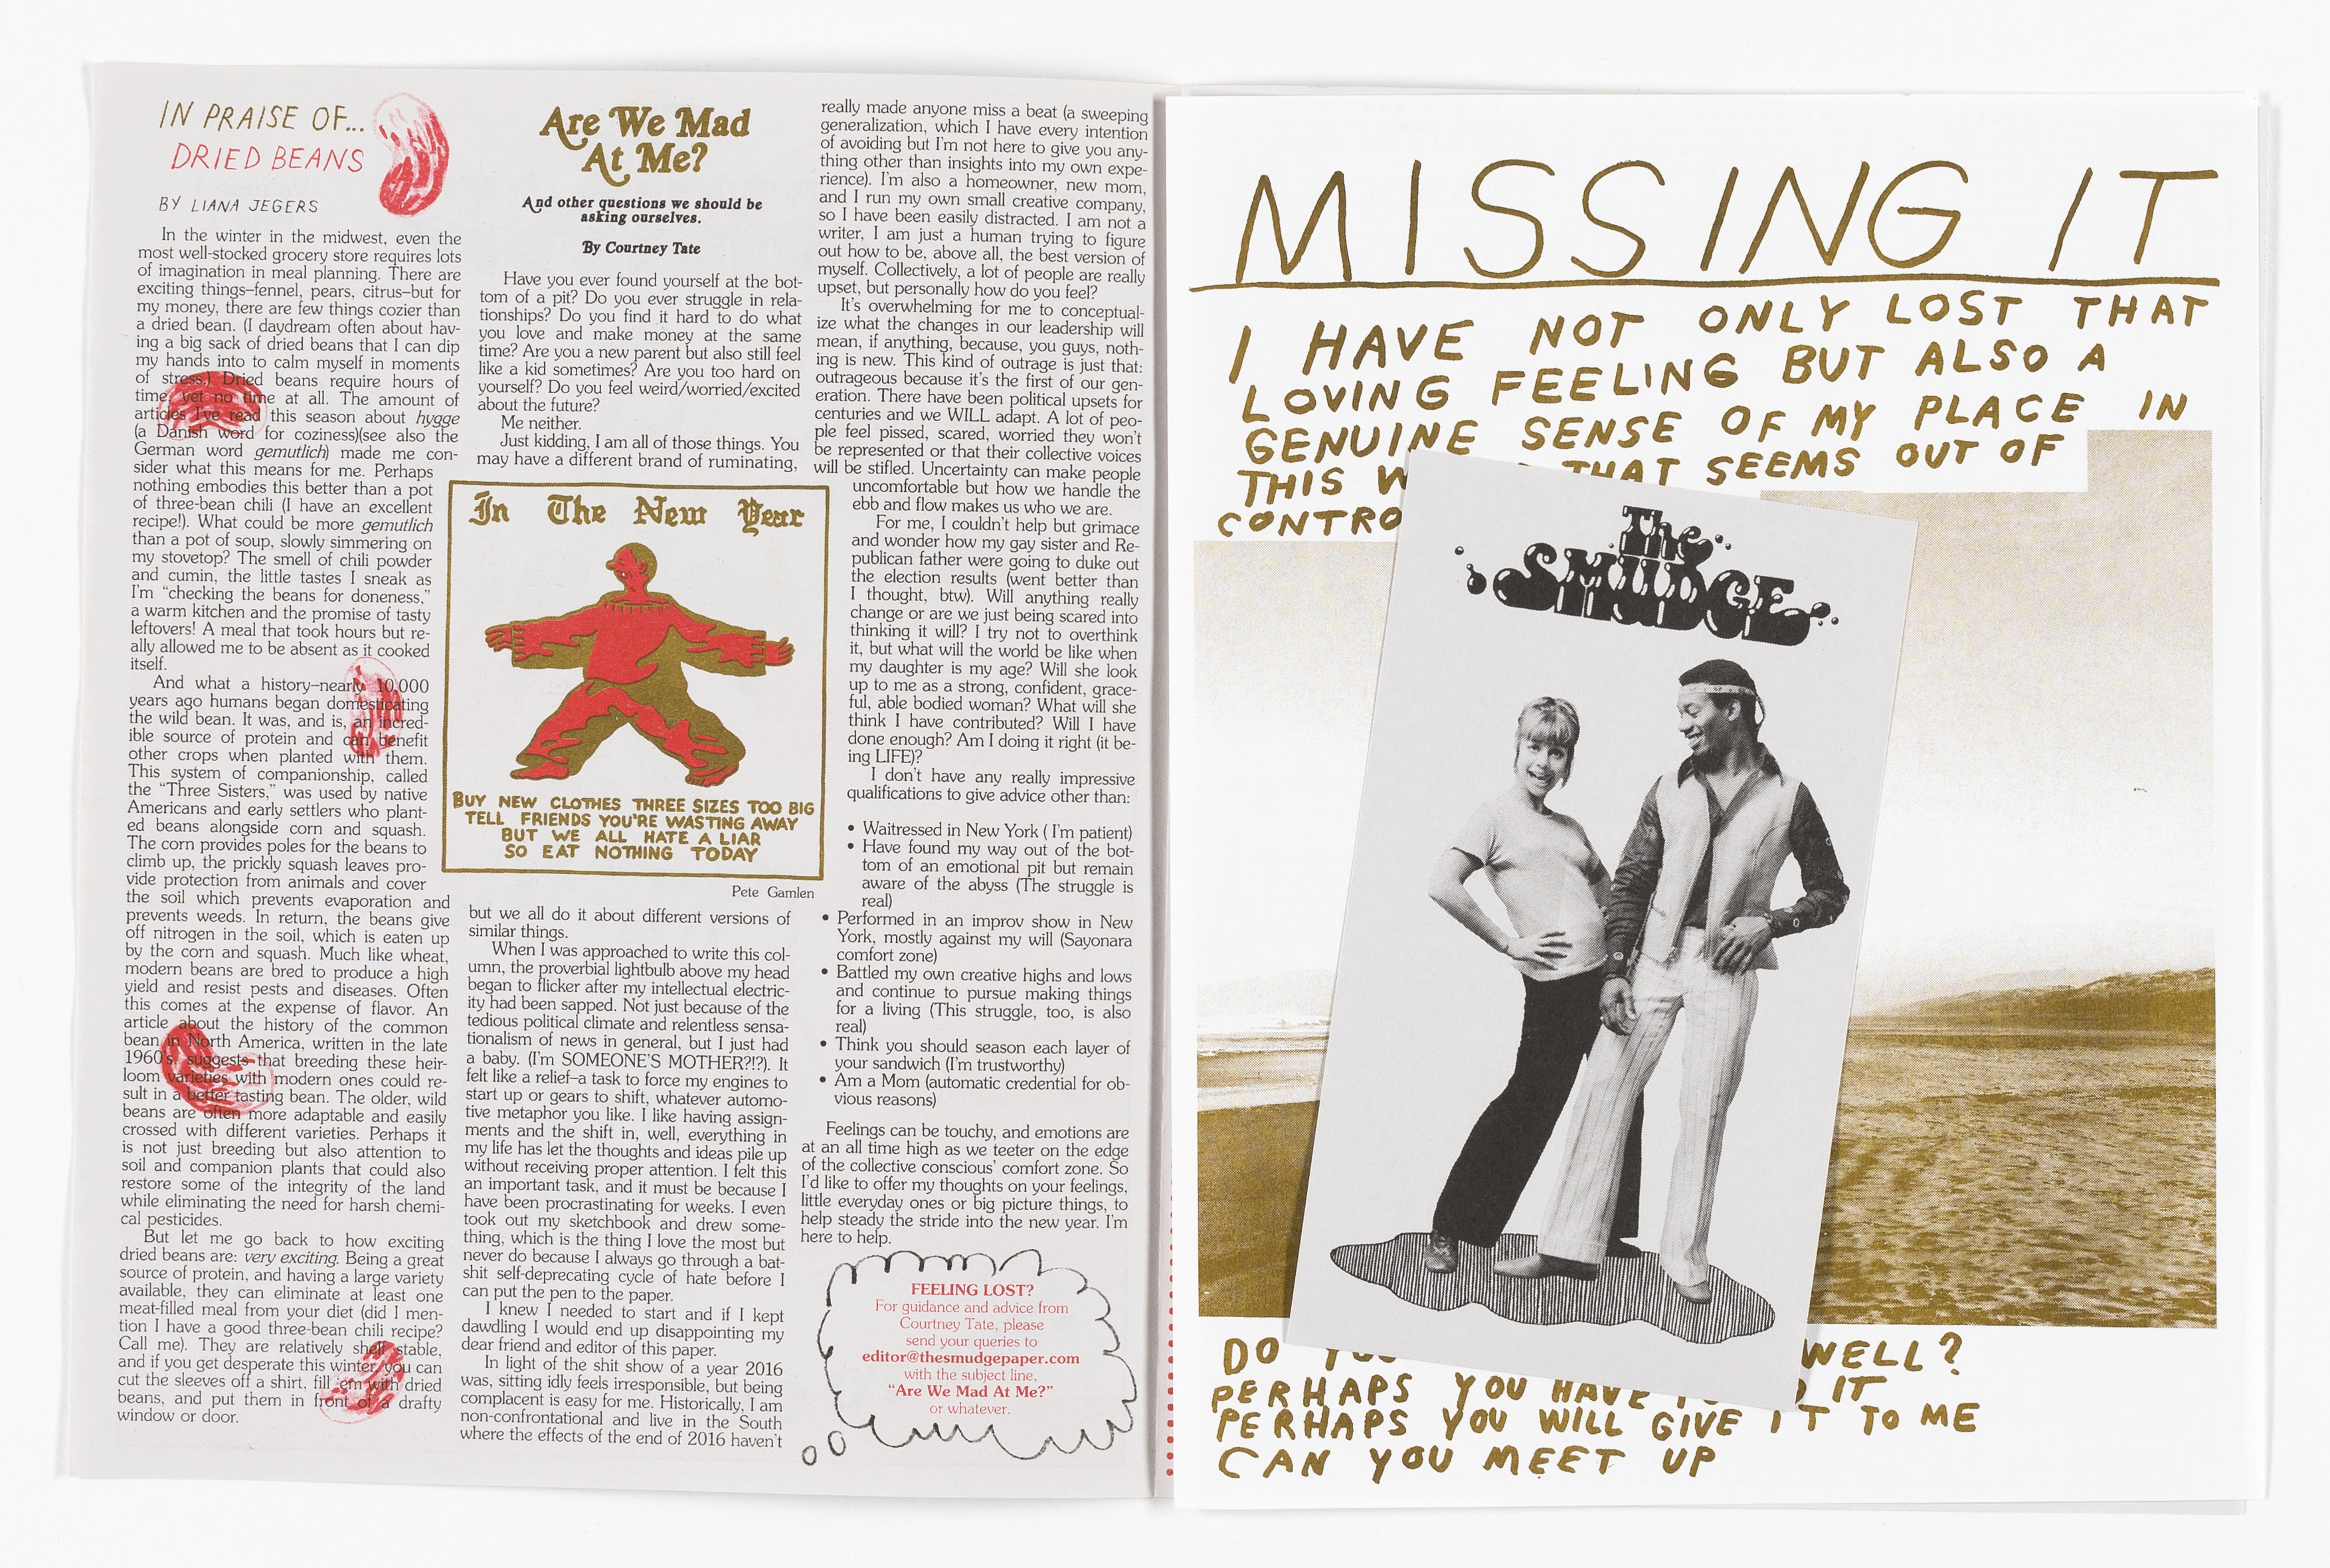 IN PRAISE OF...
DRIED BEANS
BY LIANA JEGERS
In the winter in the midwest, even the
most well-stocked grocery store requires lots
of imagination in meal planning. There are
exciting things–fennel, pears, citrus–but for
my money, there are few things cozier than
a dried bean. (I daydream often about hav-
ing a big sack of dried beans that I can dip
my hands into to calm myself in moments
of stress.) Dried beans require hours of
time, yet no time at all. The amount of
articles I've read this season about hygge
(a Danish word for coziness)(see also the
German word gemutlich) made me con-
sider what this means for me. Perhaps
nothing embodies this better than a pot
of three-bean chili (I have an excellent
recipe!). What could be more gemutlich
than a pot of soup, slowly simmering on
my stovetop? The smell of chili powder
and cumin, the little tastes I sneak as
I'm “checking the beans for doneness,”
a warm kitchen and the promise of tasty
leftovers! A meal that took hours but re-
ally allowed me to be absent as it cooked
itself.
And what a history–nearly 10,000
years ago humans began domesticating
the wild bean. It was, and is, an incred-
ible source of protein and can benefit
other crops when planted with them.
This system of companionship, called
the “Three Sisters,” was used by native
Americans and early settlers who plant-
ed beans alongside corn and squash.
The corn provides poles for the beans to
climb up, the prickly squash leaves pro-
vide protection from animals and cover
the soil which prevents evaporation and
prevents weeds. In return, the beans give
off nitrogen in the soil, which is eaten up
by the corn and squash. Much like wheat,
modern beans are bred to produce a high
yield and resist pests and diseases. Often
this comes at the expense of flavor. An
article about the history of the common
bean in North America, written in the late
1960's, suggests that breeding these heir-
loom varieties with modern ones could re-
sult in a better tasting bean. The older, wild
beans are often more adaptable and easily
crossed with different varieties. Perhaps it
is not just breeding but also attention to
soil and companion plants that could also
restore some of the integrity of the land
while eliminating the need for harsh chemi-
cal pesticides.
But let me go back to how exciting
dried beans are: very exciting. Being a great
source of protein, and having a large variety
available, they can eliminate at least one
meat-filled meal from your diet (did I men-
tion I have a good three-bean chili recipe?
Call me). They are relatively shelf stable,
and if you get desperate this winter you can
cut the sleeves off a shirt, fill 'em with dried
beans, and put them in front of a drafty
window or door.
Are We Mad
At Me?
And other questions we should be
asking ourselves.
By Courtney Tate
Have you ever found yourself at the bot-
tom of a pit? Do you ever struggle in rela-
tionships? Do you find it hard to do what
you love and make money at the same
time? Are you a new parent but also still feel
like a kid sometimes? Are you too hard on
yourself? Do you feel weird/worried/excited
about the future?
Me neither.
Just kidding, I am all of those things. You
may have a different brand of ruminating,
In The New Year
BUY NEW CLOTHES THREE SIZES TOO BIG
TELL FRIENDS YOU'RE WASTING AWAY
BUT WE ALL HATE A LIAR
SO EAT NOTHING TODAY
Pete Gamlen
but we all do it about different versions of
similar things.
When I was approached to write this col-
umn, the proverbial lightbulb above my head
began to flicker after my intellectual electric-
ity had been sapped. Not just because of the
tedious political climate and relentless sensa-
tionalism of news in general, but I just had
a baby. (I'm SOMEONE'S MOTHER?!?). It
felt like a relief–a task to force my engines to
start up or gears to shift, whatever automo-
tive metaphor you like. I like having assign-
ments and the shift in, well, everything in
my life has let the thoughts and ideas pile up
without receiving proper attention. I felt this
an important task, and it must be because I
have been procrastinating for weeks. I even
took out my sketchbook and drew some-
thing, which is the thing I love the most but
never do because I always go through a bat-
shit self-deprecating cycle of hate before I
can put the pen to the paper.
I knew I needed to start and if I kept
dawdling I would end up disappointing my
dear friend and editor of this paper.
In light of the shit show of a year 2016
was, sitting idly feels irresponsible, but being
complacent is easy for me. Historically, I am
non-confrontational and live in the South
where the effects of the end of 2016 haven't
really made anyone miss a beat (a sweeping
generalization, which I have every intention
of avoiding but I'm not here to give you any-
thing other than insights into my own expe-
rience). I'm also a homeowner, new mom,
and I run my own small creative company,
so I have been easily distracted. I am not a
writer, I am just a human trying to figure
out how to be, above all, the best version of
myself. Collectively, a lot of people are really
upset, but personally how do you feel?
It's overwhelming for me to conceptual-
ize what the changes in our leadership will
mean, if anything, because, you guys, noth-
ing is new. This kind of outrage is just that:
outrageous because it's the first of our gen-
eration. There have been political upsets for
centuries and we WILL adapt. A lot of peo-
ple feel pissed, scared, worried they won't
be represented or that their collective voices
will be stifled. Uncertainty can make people
uncomfortable but how we handle the
ebb and flow makes us who we are.
For me, I couldn't help but grimace
and wonder how my gay sister and Re-
publican father were going to duke out
the election results (went better than
I thought, btw). Will anything really
change or are we just being scared into
thinking it will? I try not to overthink
it, but what will the world be like when
my daughter is my age? Will she look
up to me as a strong, confident, grace-
ful, able bodied woman? What will she
think I have contributed? Will I have
done enough? Am I doing it right (it be-
ing LIFE)?
I don't have any really impressive
qualifications to give advice other than:
• Waitressed in New York ( I'm patient)
• Have found my way out of the bot-
tom of an emotional pit but remain
aware of the abyss (The struggle is
real)
• Performed in an improv show in New
York, mostly against my will (Sayonara
comfort zone)
• Battled my own creative highs and lows
and continue to pursue making things
for a living (This struggle, too, is also
real)
• Think you should season each layer of
your sandwich (I'm trustworthy)
• Am a Mom (automatic credential for ob-
vious reasons)
Feelings can be touchy, and emotions are
at an all time high as we teeter on the edge
of the collective conscious' comfort zone. So
I'd like to offer my thoughts on your feelings,
little everyday ones or big picture things, to
help steady the stride into the new year. I'm
here to help.
FEELING LOST?
For guidance and advice from
Courtney Tate, please
send your queries to
editor@thesmudgepaper.com
with the subject line,
“Are We Mad At Me?”
or whatever.
MISSING IT
I HAVE NOT ONLY LOST THAT
LOVING FEELING BUT ALSO A
GENUINE SENSE OF MY PLACE IN
THIS THAT SEEMS OUT OF
CONTRO
The
SMUDGE
DO YOU WELL?
PERHAPS YOU HAVE IT
PERHAPS YOU WILL GIVE IT TO ME
CAN YOU MEET UP